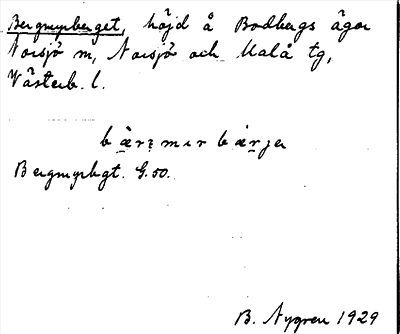 Bergmyrberget, höjd å Bodbergs ägor
Norsjö sn, Norsjö och Malå tg,
Västerb. l.
bærmırbærjer
Bergmybgt. G.50.
B. Nygren 1929